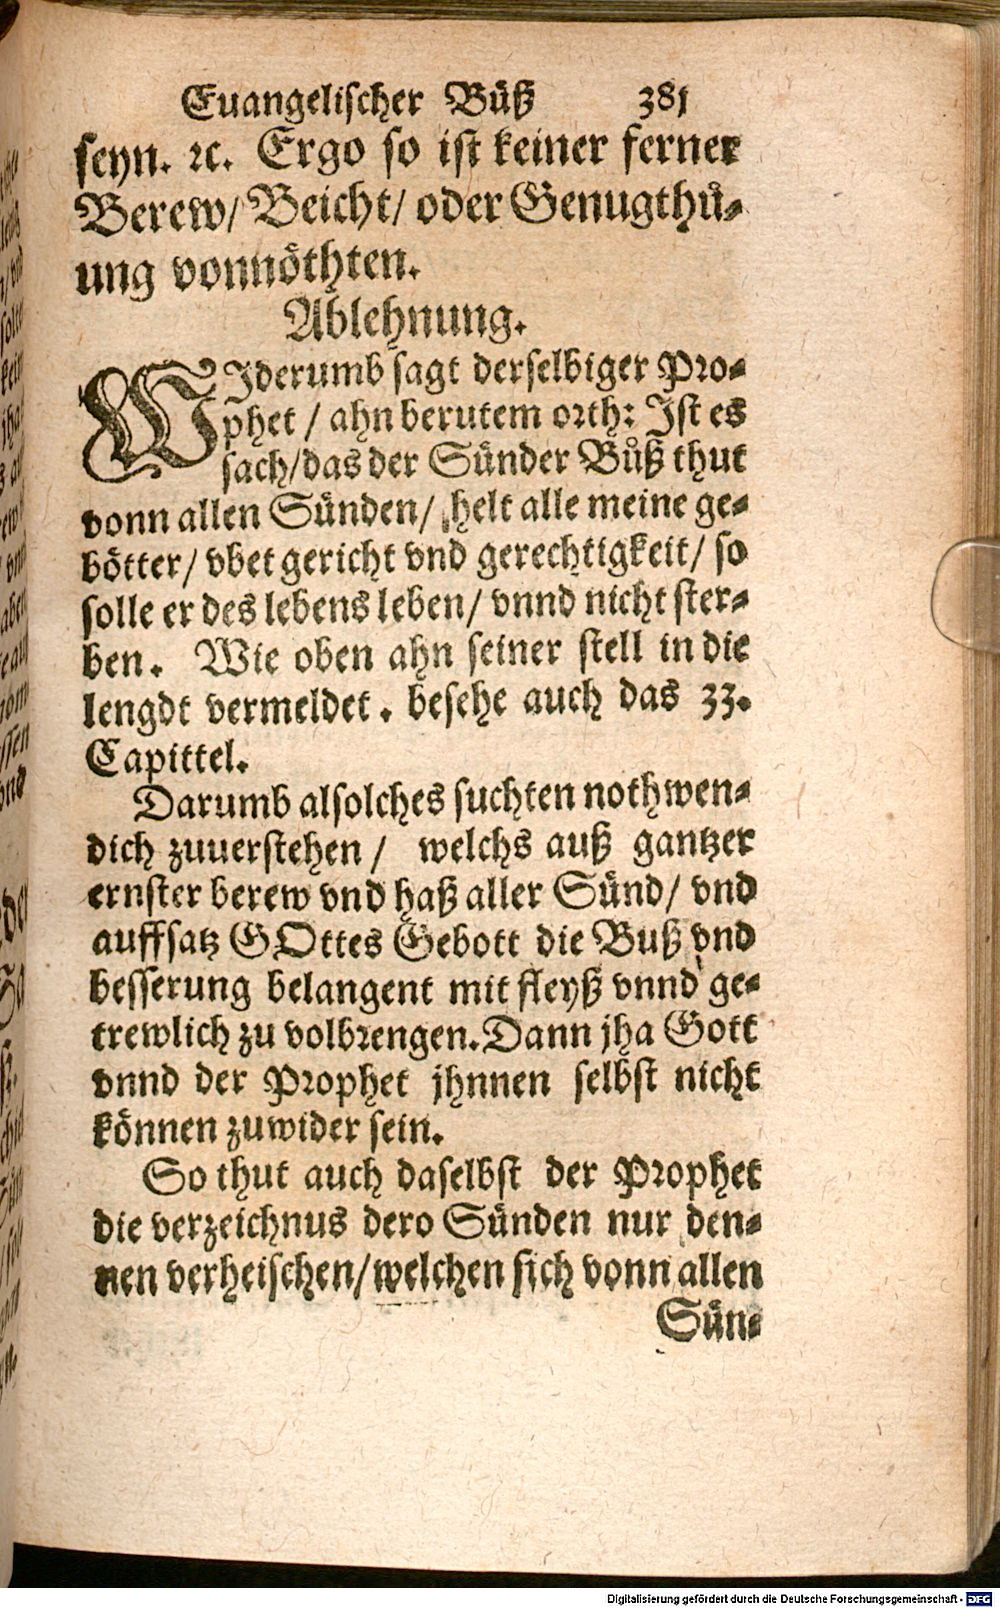 Euangelischer Büß 381
seyn. ꝛc. Ergo so ist keiner ferner
Berew/ Beicht/ oder Genugthů-
ung vonnöthten.
Ablehnung.
WJderumb sagt derselbiger Pro-
phet / ahn berutem orth: Jst es
sach/ das der Sünder Bůß thut
vonn allen Sünden/ helt alle meine ge-
bötter/ vbet gericht vnd gerechtigkeit/ so
solle er des lebens leben/ vnnd nicht ster-
ben. Wie oben ahn seiner stell in die
lengdt vermeldet. besehe auch das 33.
Capittel.
Darumb alsolches suchten nothwen-
dich zuuerstehen / welchs auß gantzer
ernster berew vnd haß aller Sünd/ vnd
auffsatz GOttes Gebott die Buß vnd
besserung belangent mit fleyß vnnd ge-
trewlich zu volbrengen. Dann jha Gott
vnnd der Prophet jhnnen selbst nicht
können zuwider sein.
So thut auch daselbst der Prophet
die verzeichnus dero Sünden nur den-
nen verheischen/ welchen sich vonn allen
Sün-
Digitalisierung gefördert durch die Deutsche Forschungsgemeinschaft - DFG